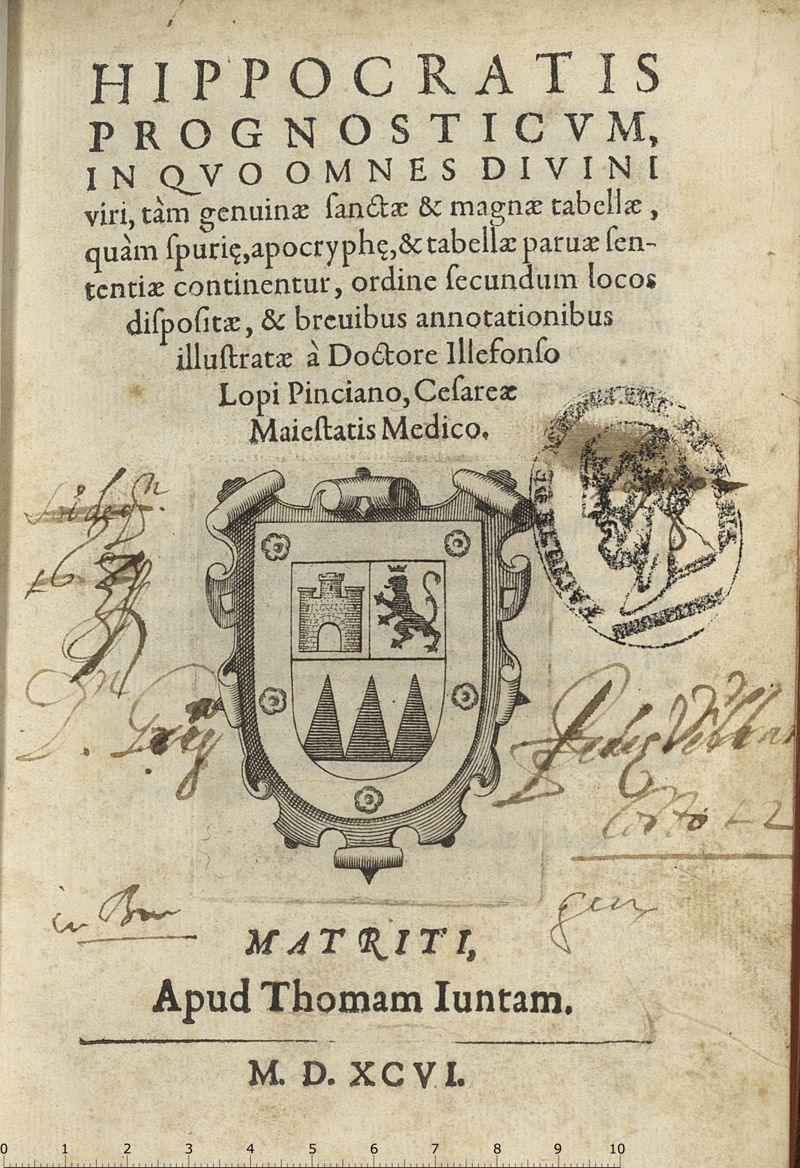 HIPPOCRATIS
PROGNOSTICVM,
IN QVO OMNES DIVINI
viri, tàm genuinæ ſanctæ & magnæ tabellæ,
quàm ſpurię, apocryphę, & tabellæ paruæ ſen-
tentiæ continentur, ordine ſecundum locos
diſpoſitæ, & breuibus annotationibus
illuſtratæ à Doctore Illefonſo
Lopi Pinciano, Ceſareæ
Maieſtatis Medico.
MATRITI,
Apud Thomam Iuntam.
M. D. XCVI.
0 1 2 3 4 5 6 7 8 9 10